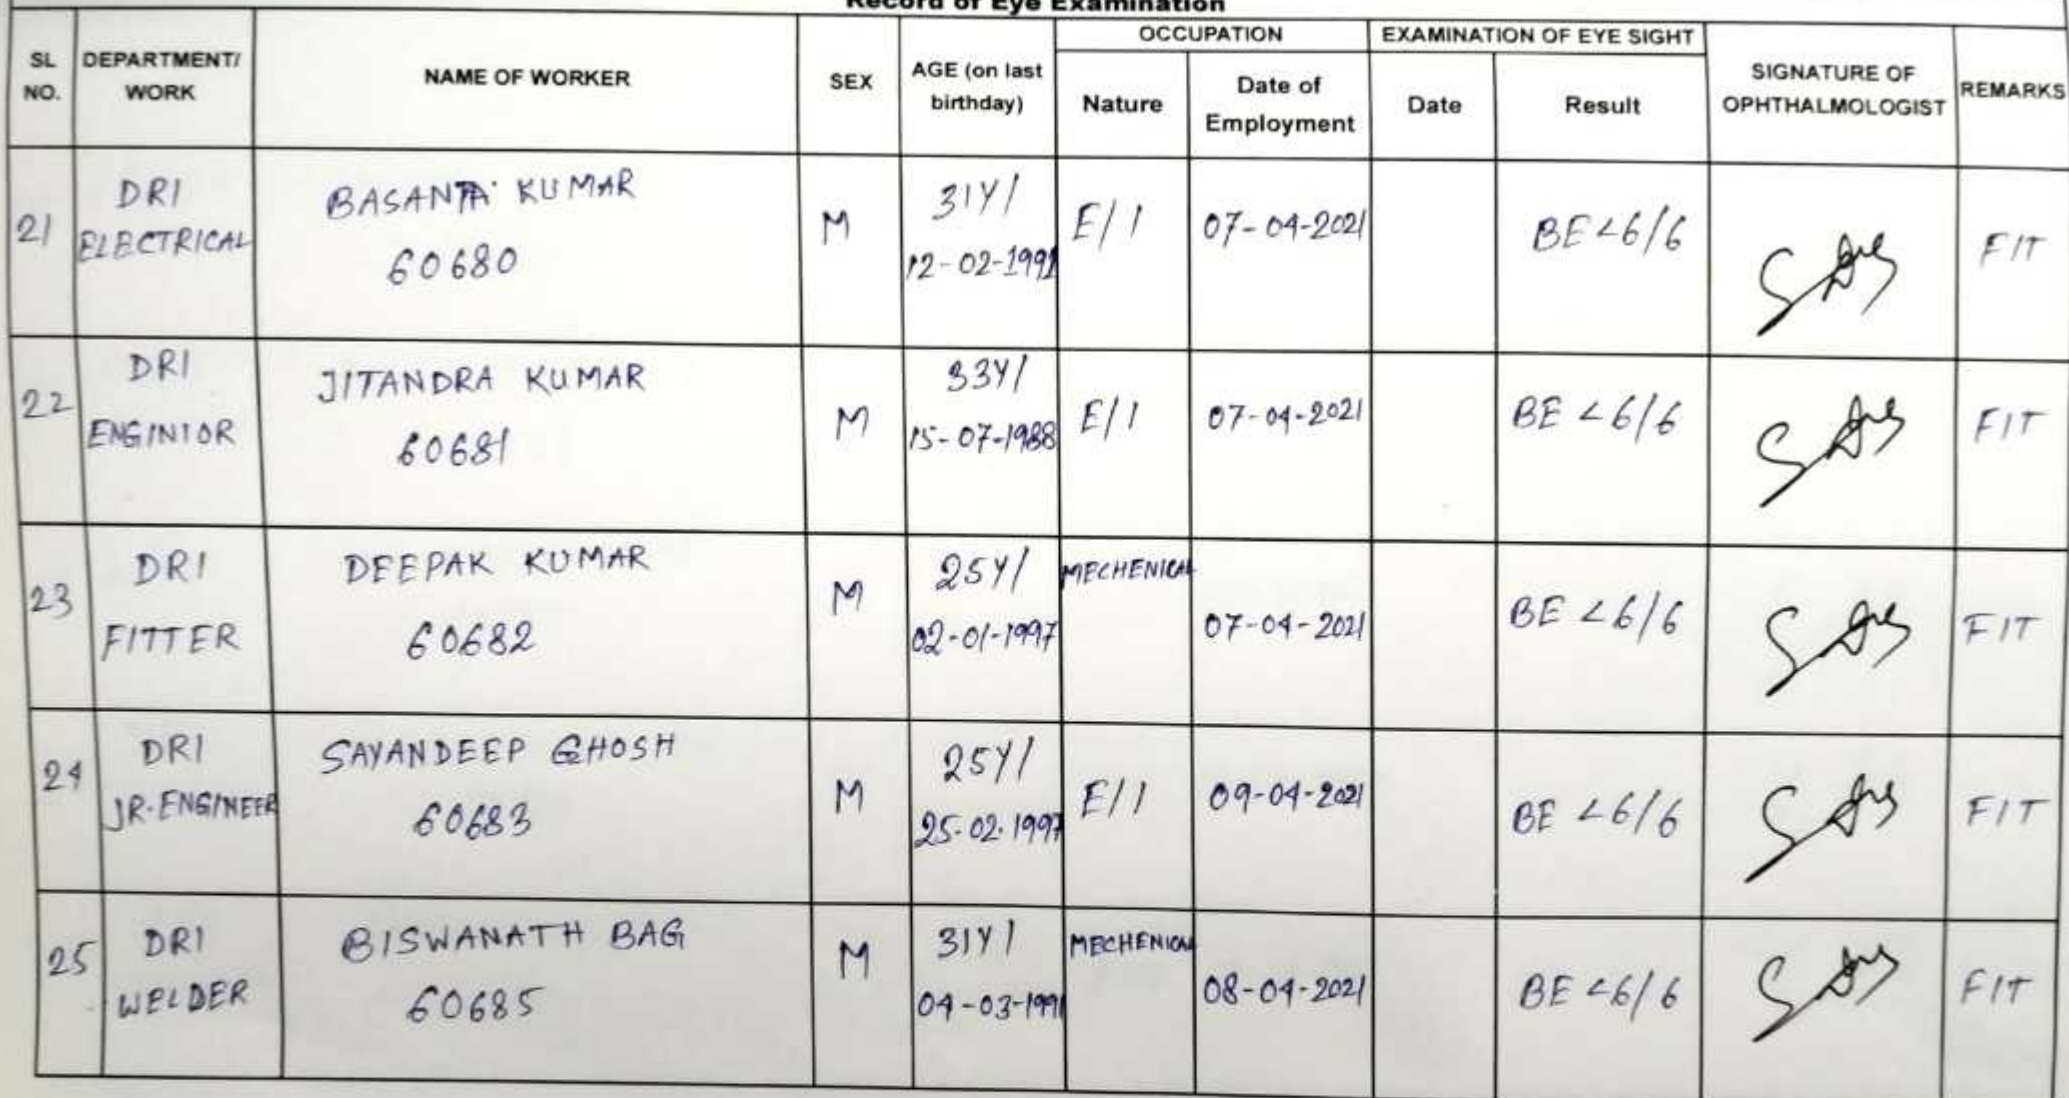 Record of Eye Examination
SL NO. DEPARTMENT/ WORK NAME OF WORKER SEX AGE (on last birthday) OCCUPATION EXAMINATION OF EYE SIGHT SIGNATURE OF OPHTHALMOLOGIST REMARKS
Nature Date of Employment Date Result
21 DRI ELECTRICAL BASANTA KUMAR 60680 M 31Y/ 12-02-1991 E/I 07-04-2021 BE <6/6 FIT
22 DRI ENGINIOR JITANDRA KUMAR 60681 M 33Y/ 15-07-1988 E/I 07-04-2021 BE <6/6 FIT
23 DRI FITTER DEEPAK KUMAR 60682 M 25Y/ 02-01-1997 MECHENICAL 07-04-2021 BE <6/6 FIT
24 DRI JR-ENGINEER SAYANDEEP GHOSH 60683 M 25Y/ 25-02-1997 E/I 09-04-2021 BE <6/6 FIT
25 DRI WELDER BISWANATH BAG 60685 M 31Y/ 04-03-1991 MECHENICAL 08-04-2021 BE <6/6 FIT